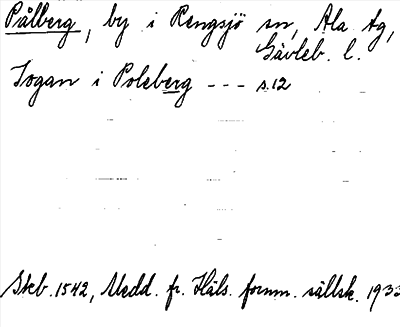 Pålberg, by i Rengsjö sn, Ala tg,
Gävleb. l.
Jogan i Poleberg --- s.12
Skb. 1542, Medd. fr. Häls. fornm. sällsk. 1933